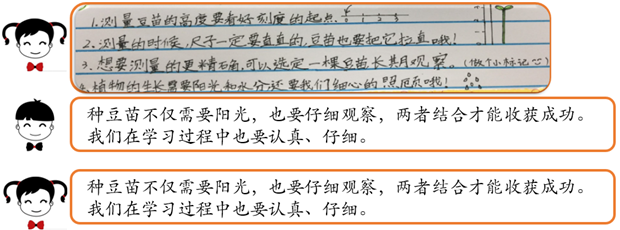 1.测量豆苗的高度要看好刻度的起点. 0 1 2 3
2.测量的时候,尺子一定要直直的,豆苗也要把它拉直哦!
3.想要测量的更精确,可以选定一棵豆苗长期观察。(做小标记)
4.植物的生长需要阳光和水分还要我们细心的照顾哦!
种豆苗不仅需要阳光,也要仔细观察,两者结合才能收获成功。
我们在学习过程中也要认真、仔细。
种豆苗不仅需要阳光,也要仔细观察,两者结合才能收获成功。
我们在学习过程中也要认真、仔细。